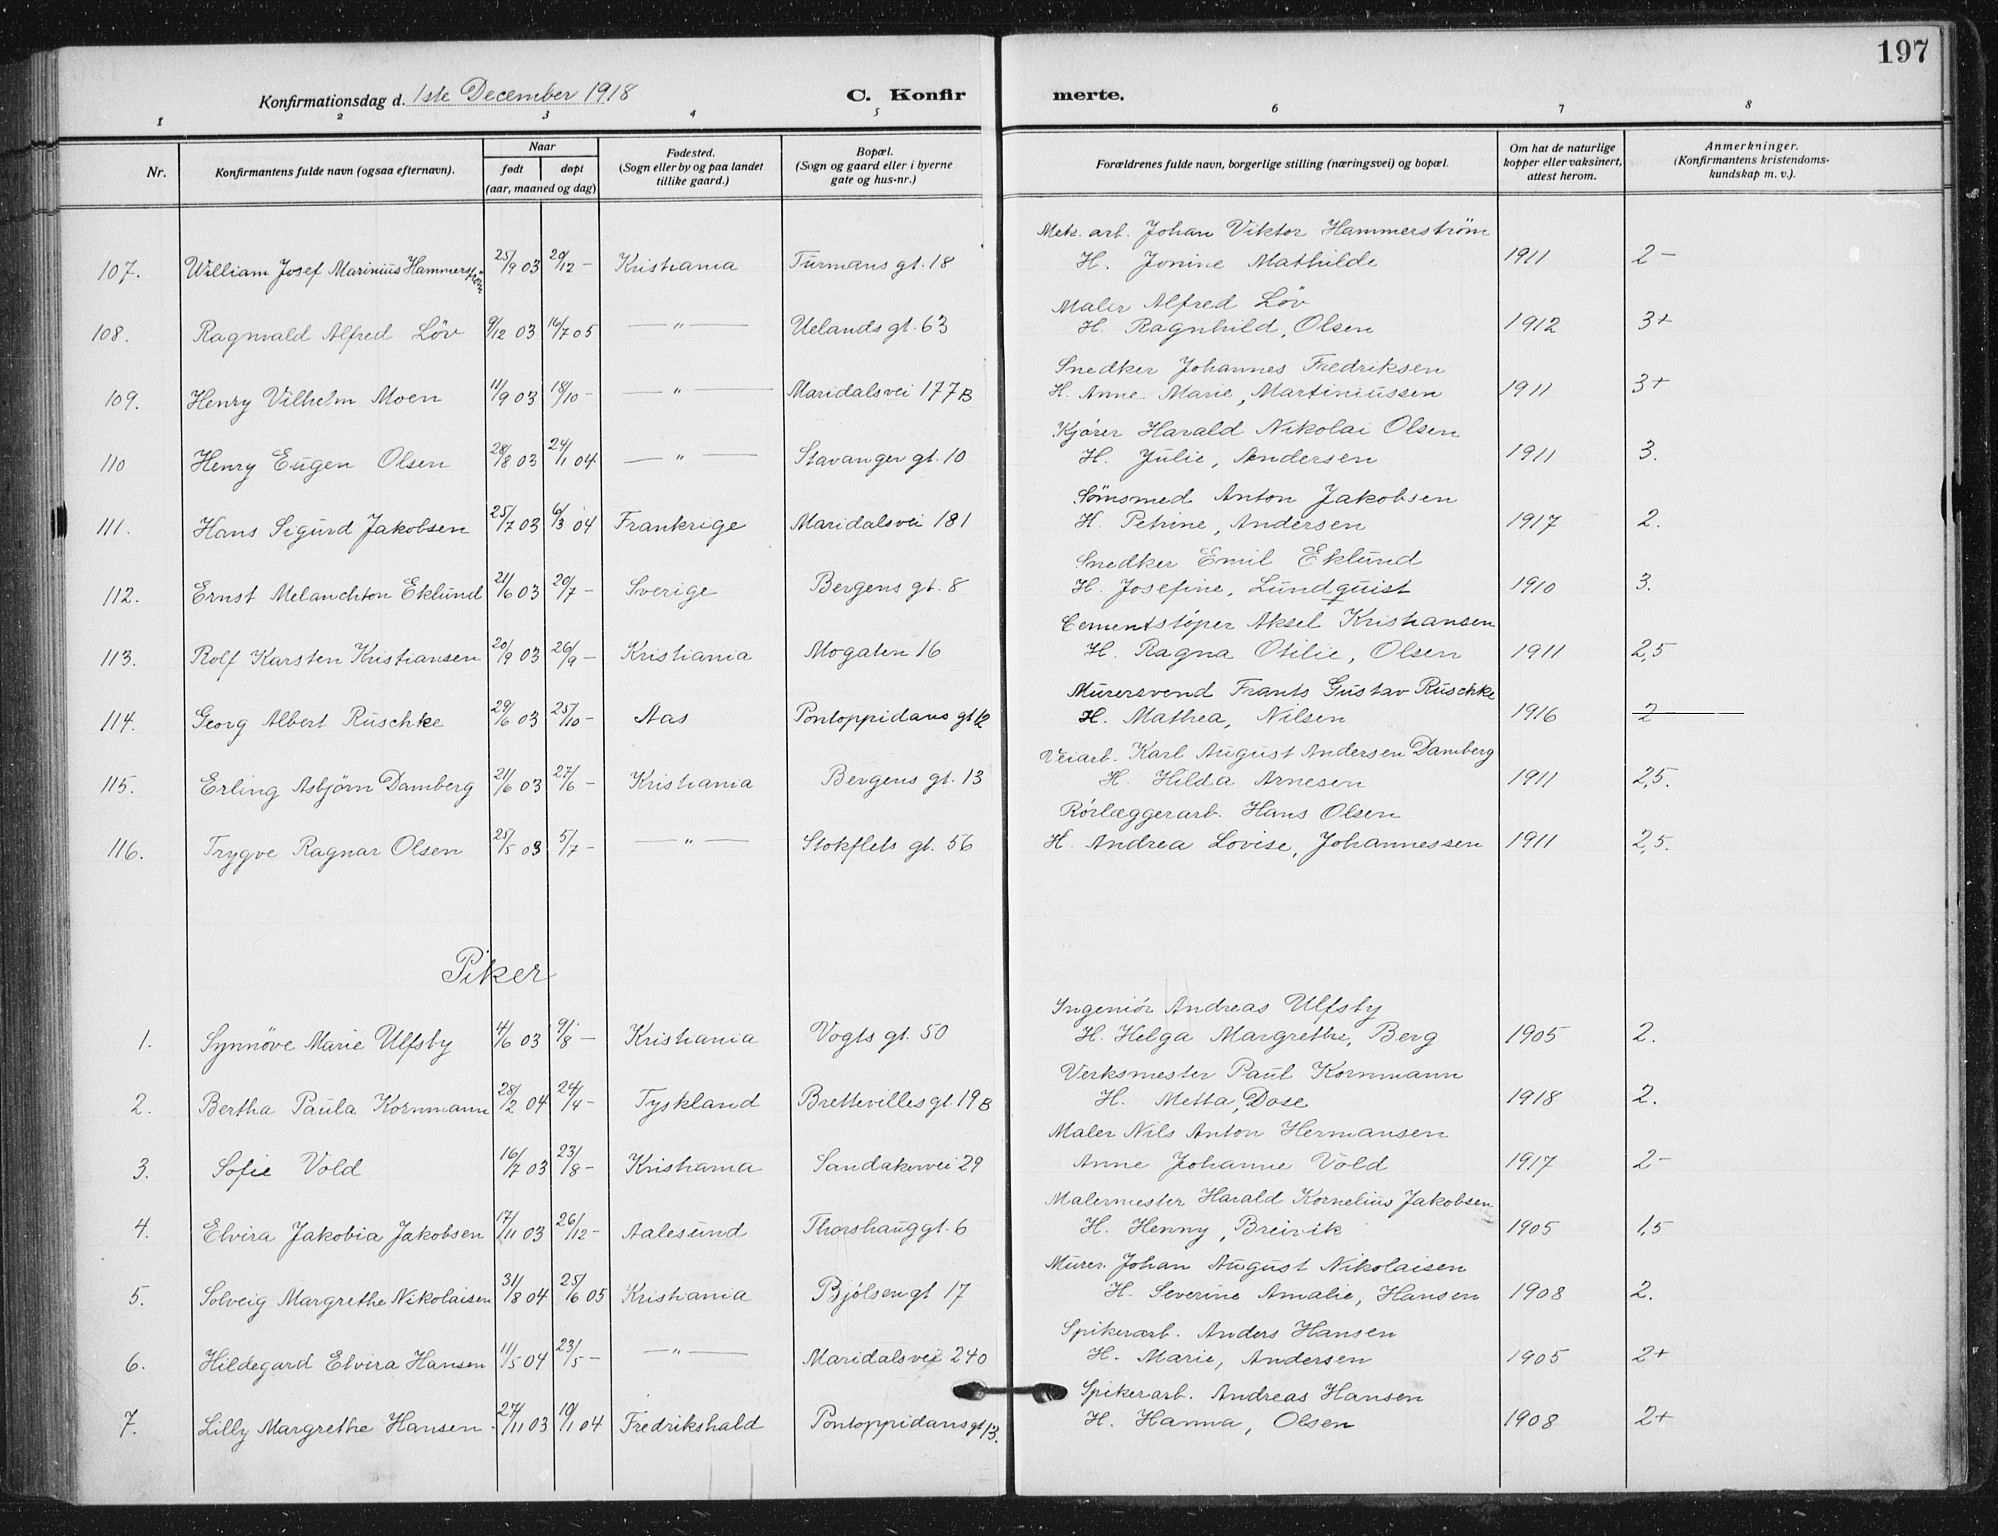 197
Konfirmationsdag d. 1ste December 1918 C. Konfir merte.
1 2 3 4 5 6 7 8
Nr. Konfirmantens fulde navn (ogsaa efternavn). Naar født døpt (aar, maaned og dag) Fødested. (Sogn eller by og paa landet tillike gaard.) Bopæl. (Sogn og gaard eller i byerne gate og hus-nr.) Forældrenes fulde navn, borgerlige stilling (næringsvei) og bopæl. Om hat de naturlige kopper eller vaksinert, attest herom. Anmerkninger. (Konfirmantens kristendoms-kundskap m. v.).
Mek. arb. Johan Viktor Hammerstrøm
107. William Josef Marinius Hammerstrøm 25/9 03 20/12 – Kristiania Turmans gt. 18 H. Jonine Mathilde 1911 2 –
Maler Alfred Löv
108. Ragnvald Alfred Löv 9/12 03 16/7 05 — " — Uelands gt. 63 H. Ragnhild, Olsen 1912 3+
Snedker Johannes Fredriksen
109. Henry Vilhelm Moen 11/9 03 18/10 – — " — Maridalsvei 177B H. Anne Marie, Martiniussen 1911 3+
Kjører Harald Nikolai Olsen
110 Henry Eugen Olsen 28/8 03 24/1 04 — " — Stavanger gt. 10 H. Julie, Andersen 1911 3.
Sømsmed Anton Jakobsen
111. Hans Sigurd Jakobsen 25/7 03 6/3 04 Frankrige Maridalsvei 181 H. Petrine, Andersen 1917 2.
Snedker Emil Eklund
112. Ernst Melanchton Eklund 21/6 03 20/7 – Sverige Bergens gt. 8 H. Josefine, Lundquist 1910 3.
Cementstøper Aksel Kristiansen
113. Rolf Karsten Kristiansen 20/9 03 26/9 – Kristiania Mogaten 16 H. Ragna Otilie, Olsen 1911 2,5
Murersvend Frants Gustav Ruschke
114. Georg Albert Ruschke 29/6 03 25/10 – Aas Pontoppidans gt 12 H. Mathea, Nilsen 1916 2
Veiarb. Karl August Andersen Damberg
115. Erling Asbjørn Damberg 21/6 03 27/6 – Kristiania Bergens gt. 13 H. Hilda Arnesen 1911 2,5.
Rørlæggerarb. Hans Olsen
116. Trygve Ragnar Olsen 25/5 03 5/7 – — " — Stokflets gt. 56 H. Andrea Lovise, Johannessen 1911 2,5.
Piker
Ingeniør Andreas Ulfsby
1. Synnöve Marie Ulfsby 4/6 03 9/8 – Kristiania Vogts gt. 50 H. Helga Margrethe, Berg 1905 2.
Verksmester Paul Kornmann
2. Bertha Paula Kornmann 28/2 04 24/4 – Tyskland Brettevilles gt. 19B H. Metta, Dose 1918 2.
Maler Nils Anton Hermansen
3. Sofie Vold 16/7 03 23/8 – Kristiania Sandakervei 29 Anne Johanne Vold 1917 2-
Malermester Harald Kornelius Jakobsen
4. Elvira Jakobia Jakobsen 17/11 03 26/12 – Aalesund Thorshauggt. 6 H. Henny, Breivik 1905 1,5
Murer. Johan August Nikolaisen
5. Solveig Margrethe Nikolaisen 31/8 04 25/6 05 Kristiania Bjølsengt 17 H. Severine Amalie, Hansen 1908 2.
Spikerarb. Anders Hansen
6. Hildegard Elvira Hansen 11/5 04 23/5 – — " — Maridalsvei 240 H. Marie, Andersen 1905 2+
Spikerarb. Andreas Hansen
7. Lilly Margrethe Hansen 27/11 03 10/1 04 Fredrikshald Pontoppidans gt 13. H. Hanna, Olsen 1908 2+